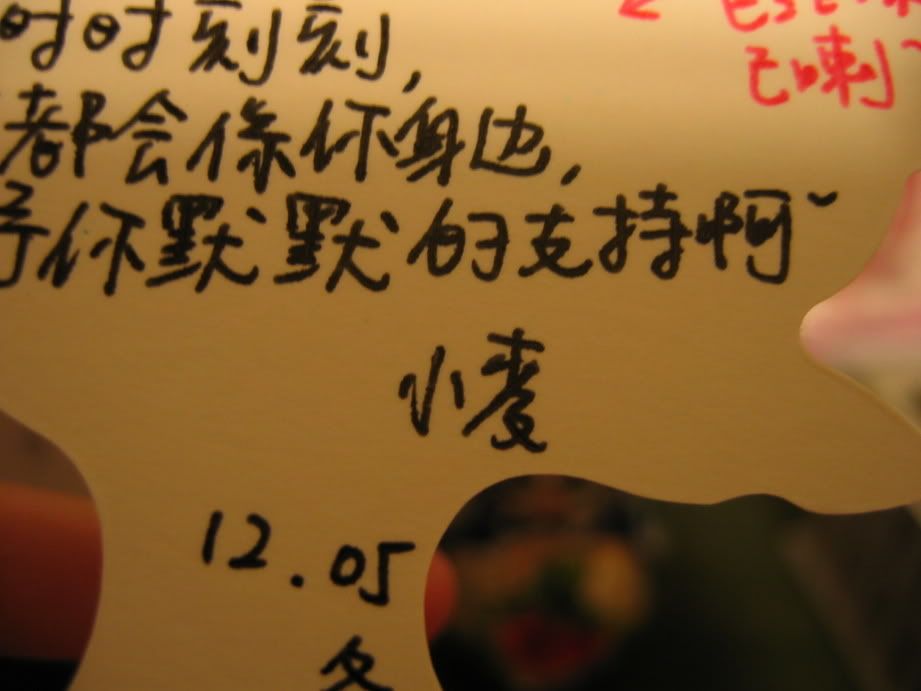 时时刻刻,
都会係你身边,
予你默默的支持啊~
小麦
12.05
己喇~